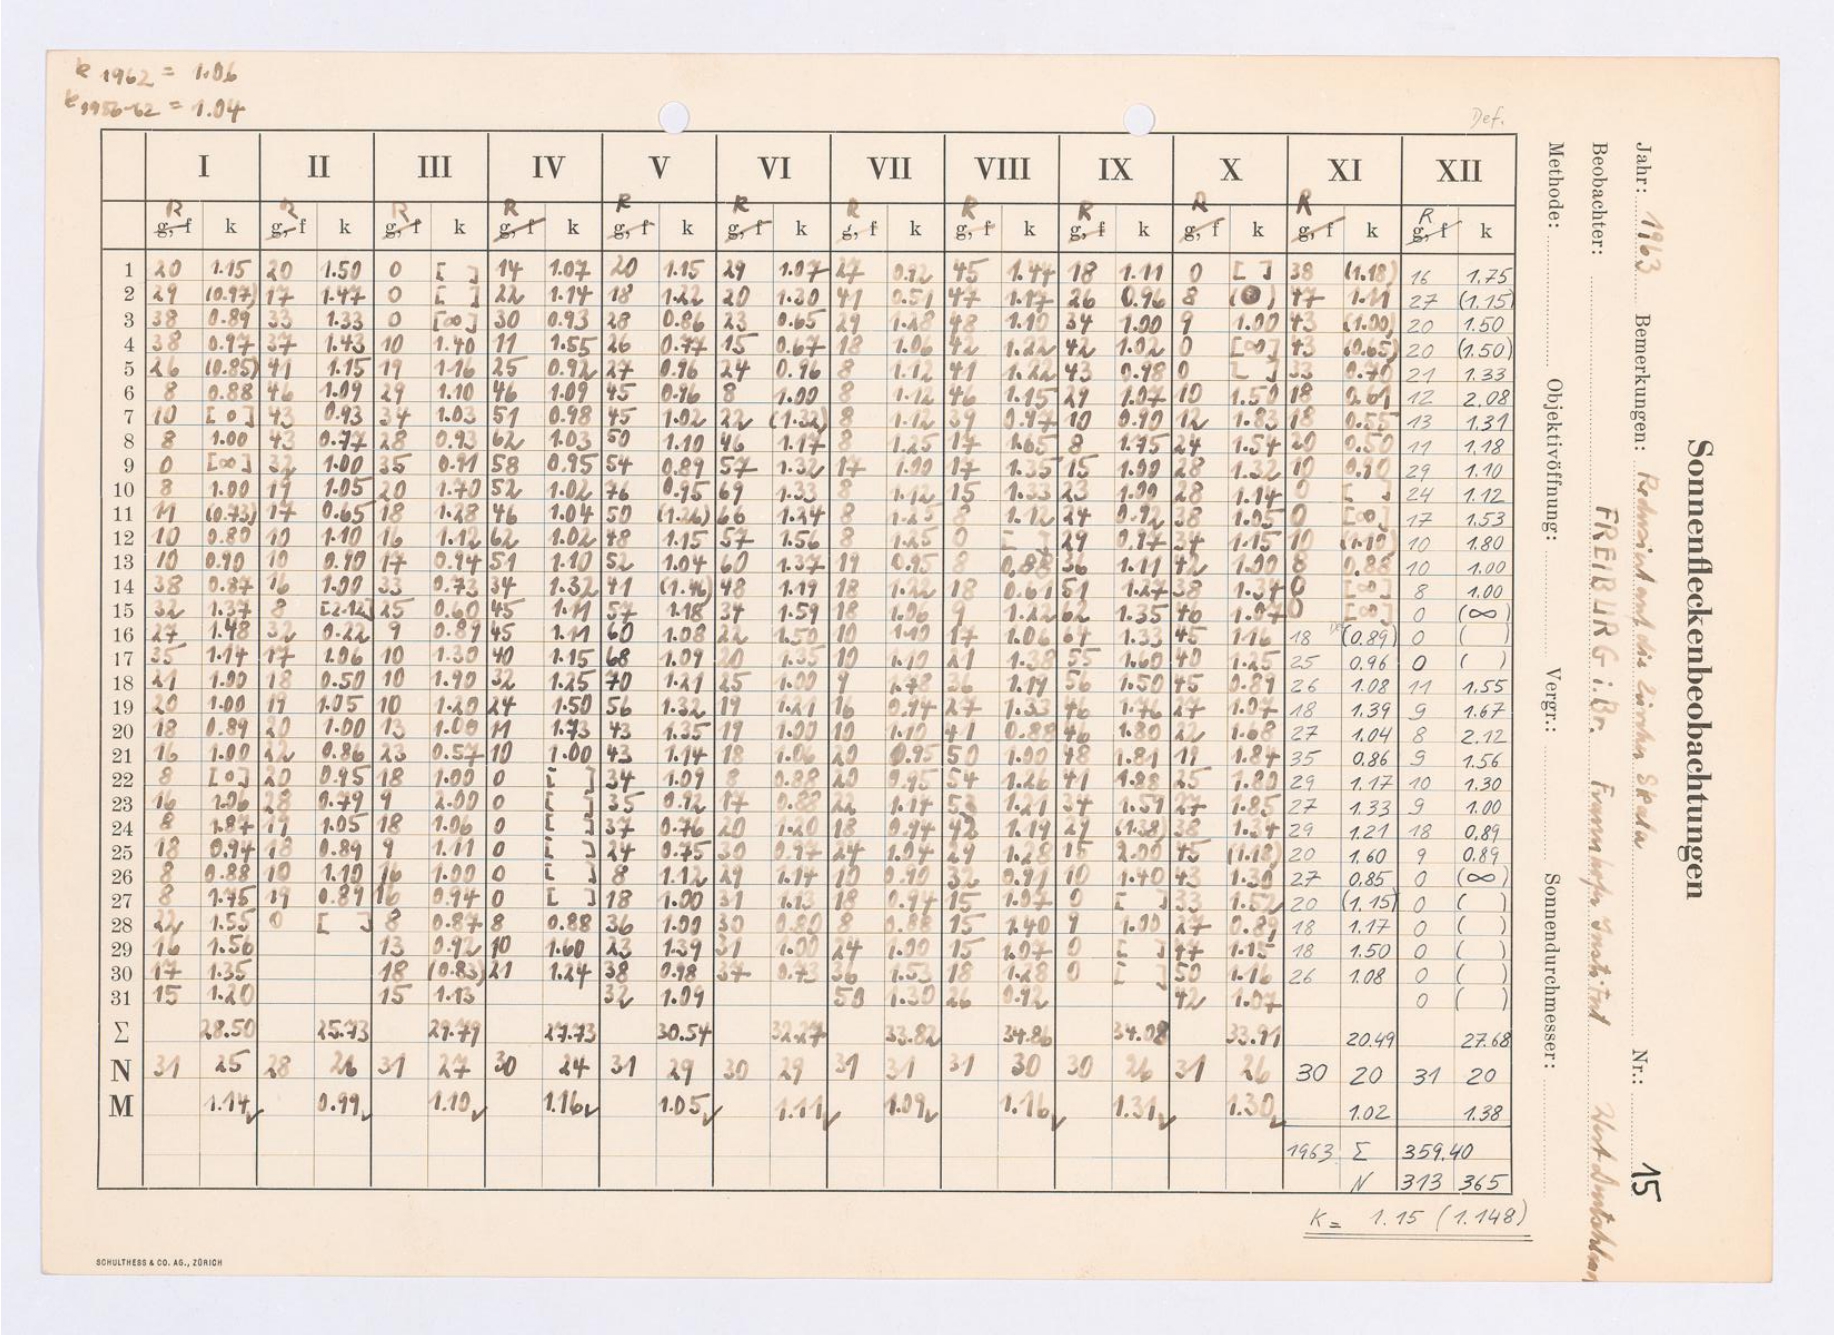 k 1962 = 1.06
k 1956-62 = 1.04
Def.
Sonnenfleckenbeobachtungen
Jahr: 1963 Bemerkungen: Reduziert auf die Zürcher Skala Nr.: 15
Beobachter: FREIBURG i.Br. Fraunhofer Institut
Methode: Objektivöffnung: Vergr.: Sonnendurchmesser:
I II III IV V VI VII VIII IX X XI XII
R R R R R R R R R R R R
g, f k g, f k g, f k g, f k g, f k g, f k g, f k g, f k g, f k g, f k g, f k g, f k
1 20 1.15 20 1.50 0 [ ] 14 1.07 20 1.15 29 1.07 27 0.92 45 1.44 18 1.11 0 [ ] 38 (1.18) 16 1.75
2 29 (0.97) 17 1.47 0 [ ] 22 1.14 18 1.22 20 1.30 41 0.51 47 1.17 26 0.96 8 47 1.11 27 (1.15)
3 38 0.89 33 1.33 0 [∞] 30 0.93 28 0.86 23 0.65 29 1.28 48 1.10 34 1.00 9 1.00 43 (1.00) 20 1.50
4 38 0.97 37 1.43 10 1.40 11 1.55 26 0.77 15 0.67 18 1.06 42 1.22 42 1.02 0 [∞] 43 (0.65) 20 (1.50)
5 26 (0.85) 41 1.15 19 1.16 25 0.92 27 0.96 24 0.96 8 1.12 41 1.22 43 0.98 0 [ ] 33 0.70 21 1.33
6 8 0.88 46 1.09 29 1.10 46 1.09 45 0.96 8 1.00 8 1.12 46 1.15 29 1.07 10 1.50 18 0.61 12 2.08
7 10 [0] 43 0.93 34 1.03 51 0.98 45 1.02 22 (1.32) 8 1.12 39 0.97 10 0.90 12 1.83 18 0.55 13 1.31
8 8 1.00 43 0.77 28 0.93 62 1.03 50 1.10 46 1.17 8 1.25 17 1.65 8 1.75 24 1.54 20 0.50 11 1.18
9 0 [∞] 32 1.00 35 0.91 58 0.95 54 0.89 57 1.32 17 1.00 17 1.35 15 1.00 28 1.32 10 0.90 29 1.10
10 8 1.00 19 1.05 20 1.70 52 1.02 76 0.95 69 1.33 8 1.12 15 1.33 23 1.00 28 1.14 0 [ ] 24 1.12
11 11 (0.73) 17 0.65 18 1.28 46 1.04 50 (1.26) 66 1.24 8 1.25 8 1.12 24 0.92 38 1.05 0 [∞] 17 1.53
12 10 0.80 10 1.10 16 1.12 62 1.02 48 1.15 57 1.56 8 1.25 0 [ ] 29 0.97 34 1.15 10 (1.10) 10 1.80
13 10 0.90 10 0.90 17 0.94 51 1.10 52 1.04 60 1.37 19 0.95 8 0.88 36 1.11 42 1.00 8 0.88 10 1.00
14 38 0.87 16 1.00 33 0.73 34 1.32 41 (1.46) 48 1.19 18 1.22 18 0.61 51 1.27 38 1.34 0 [∞] 8 1.00
15 32 1.37 8 [2.12] 25 0.60 45 1.11 57 1.18 34 1.59 18 1.06 9 1.22 62 1.35 46 1.07 0 [∞] 0 (∞)
16 27 1.48 32 0.22 9 0.89 45 1.11 60 1.08 22 1.50 10 1.10 17 1.06 64 1.33 45 1.16 18 (0.89) 0 ( )
17 35 1.14 17 1.06 10 1.30 40 1.15 68 1.09 20 1.35 10 1.10 21 1.38 55 1.60 40 1.25 25 0.96 0 ( )
18 21 1.00 18 0.50 10 1.90 32 1.25 70 1.21 25 1.00 9 1.78 36 1.19 56 1.50 45 0.89 26 1.08 11 1.55
19 20 1.00 19 1.05 10 1.20 24 1.50 56 1.32 19 1.21 16 0.94 27 1.33 46 1.76 27 1.07 18 1.39 9 1.67
20 18 0.89 20 1.00 13 1.00 11 1.73 43 1.35 19 1.00 10 1.10 41 0.88 46 1.80 22 1.68 27 1.04 8 2.12
21 16 1.00 22 0.86 23 0.57 10 1.00 43 1.14 18 1.06 20 0.95 50 1.00 48 1.81 19 1.84 35 0.86 9 1.56
22 8 [0] 20 0.95 18 1.00 0 [ ] 34 1.09 8 0.88 20 0.95 54 1.26 41 1.88 25 1.80 29 1.17 10 1.30
23 16 1.06 28 0.79 9 2.00 0 [ ] 35 0.92 17 0.88 22 1.14 53 1.21 34 1.59 27 1.85 27 1.33 9 1.00
24 8 1.87 19 1.05 18 1.06 0 [ ] 37 0.76 20 1.20 18 0.94 42 1.19 21 (1.38) 38 1.34 29 1.21 18 0.89
25 18 0.94 18 0.89 9 1.11 0 [ ] 24 0.75 30 0.97 24 1.04 29 1.28 15 2.00 45 (1.18) 20 1.60 9 0.89
26 8 0.88 10 1.10 16 1.00 0 [ ] 8 1.12 29 1.14 10 0.90 32 0.91 10 1.40 43 1.30 27 0.85 0 (∞)
27 8 1.75 19 0.89 16 0.94 0 [ ] 18 1.00 31 1.13 18 0.94 15 1.07 0 [ ] 33 1.52 20 (1.15) 0 ( )
28 22 1.55 0 [ ] 8 0.87 8 0.88 36 1.00 30 0.80 8 0.88 15 1.40 9 1.00 27 0.89 18 1.17 0 ( )
29 16 1.56 13 0.92 10 1.60 23 1.39 31 1.00 24 1.00 15 1.07 0 [ ] 47 1.15 18 1.50 0 ( )
30 17 1.35 18 (0.83) 21 1.24 38 0.98 37 0.73 36 1.53 18 1.28 0 [ ] 50 1.16 26 1.08 0 ( )
31 15 1.20 15 1.13 32 1.09 50 1.30 26 0.92 42 1.07 0 ( )
Σ 28.50 25.73 29.79 27.73 30.54 32.27 33.82 34.86 34.08 33.91 20.49 27.68
N 31 25 28 26 31 27 30 24 31 29 30 29 31 31 31 30 30 26 31 26 30 20 31 20
M 1.14 0.99 1.10 1.16 1.05 1.11 1.09 1.16 1.31 1.30 1.02 1.38
1963 Σ 359.40
N 313 365
K = 1.15 (1.148)
SCHULTHESS & CO. AG., ZÜRICH